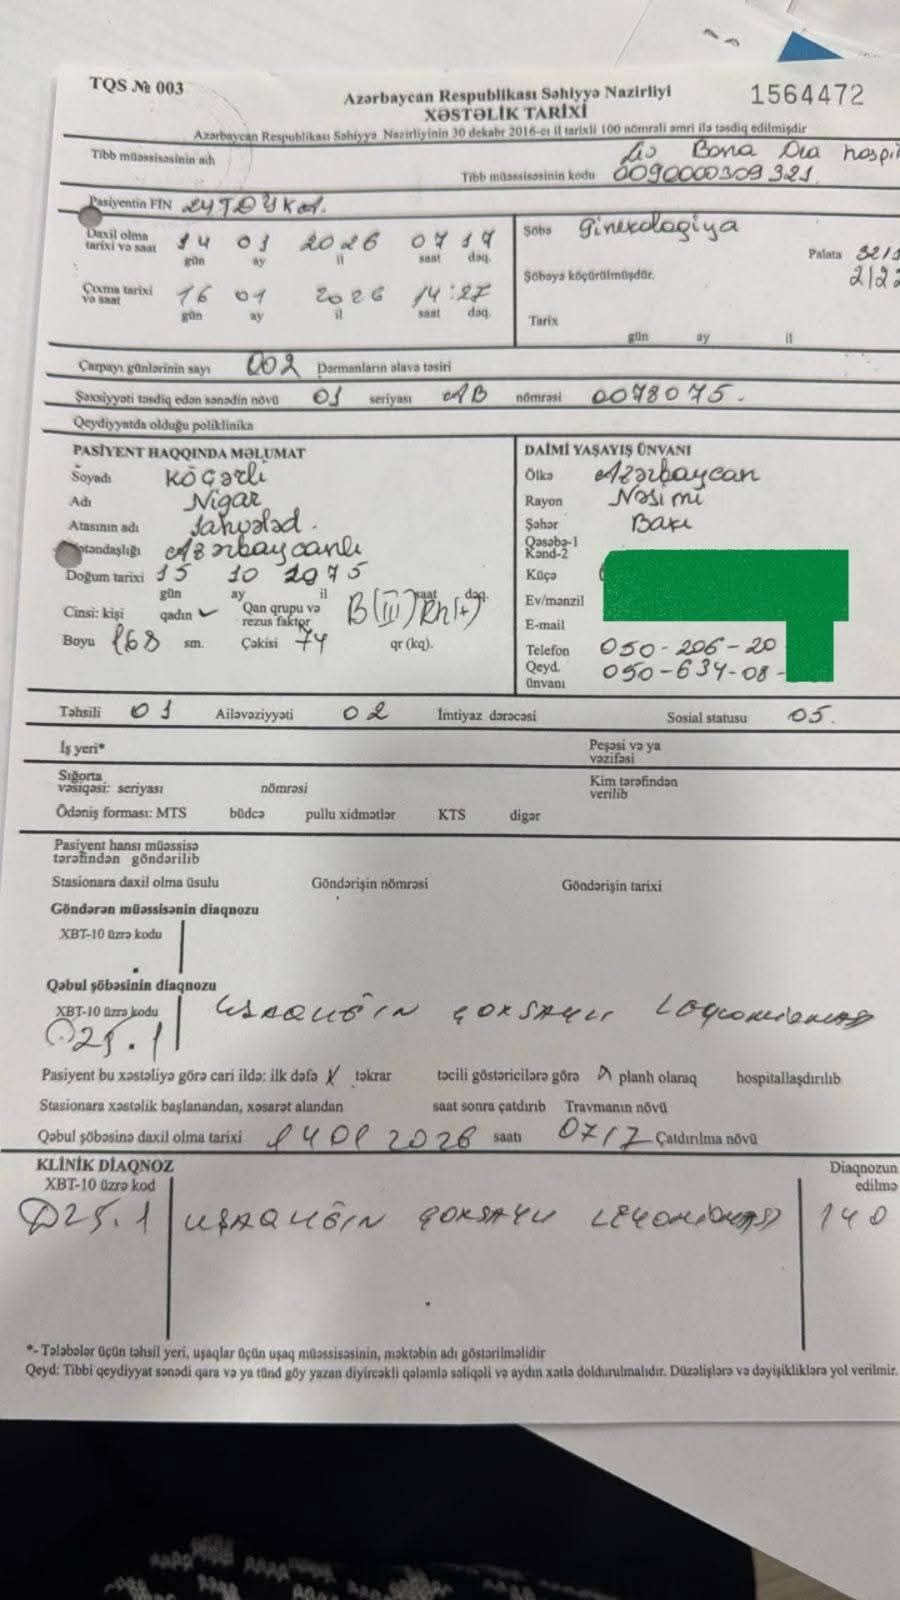 TQS № 003
Azərbaycan Respublikası Səhiyyə Nazirliyi
1564472
XƏSTƏLİK TARİXİ
Azərbaycan Respublikası Səhiyyə Nazirliyinin 30 dekabr 2016-cı il tarixli 100 nömrəli əmri ilə təsdiq edilmişdir
Tibb müəssisəsinin adı Bona Dea hospi
Tibb müəssisəsinin kodu 0090000309321
Pasiyentin FİN
Daxil olma tarixi və saat 14 01 2026 07 17
gün ay il saat dəq.
Çıxma tarixi və saat 16 01 2026 14:27
gün ay il saat dəq.
Şöbə Ginekologiya
Palata 32/
2/22
Şöbəyə köçürülmüşdür.
Tarix
gün ay il
Çarpayı günlərinin sayı 002 Dərmanların əlavə təsiri
Şəxsiyyəti təsdiq edən sənədin növü 01 seriyası AB nömrəsi 0078075.
Qeydiyyatda olduğu poliklinika
PASİYENT HAQQINDA MƏLUMAT
Soyadı Köçərli
Adı Nigar
Atasının adı
ətəndaşlığı Azərbaycanlı
Doğum tarixi 15 10 1975
gün ay il saat dəq.
Cinsi: kişi qadın ✓ Qan qrupu və rezus faktor B(III) Rh(+)
Boyu 168 sm. Çəkisi 74 qr (kq).
DAİMİ YAŞAYIŞ ÜNVANI
Ölkə Azərbaycan
Rayon Nəsimi
Şəhər Bakı
Qəsəbə-1
Kənd-2
Küçə
Ev/mənzil
E-mail
Telefon 050-206-20
Qeyd. ünvanı 050-634-08-
Təhsili 01 Ailəvəziyyəti 02 İmtiyaz dərəcəsi Sosial statusu 05.
İş yeri* Peşəsi və ya vəzifəsi
Sığorta vəsiqəsi: seriyası nömrəsi Kim tərəfindən verilib
Ödəniş forması: MTS büdcə pullu xidmətlər KTS digər
Pasiyent hansı müəssisə tərəfindən göndərilib
Stasionara daxil olma üsulu Göndərişin nömrəsi Göndərişin tarixi
Göndərən müəssisənin diaqnozu
XBT-10 üzrə kodu
Qəbul şöbəsinin diaqnozu
XBT-10 üzrə kodu UŞAQLIĞIN ÇOXSAYLI LEYOMİOMASI
D25.1
Pasiyent bu xəstəliyə görə cari ildə: ilk dəfə təkrar təcili göstəricilərə görə planlı olaraq hospitallaşdırılıb
Stasionara xəstəlik başlanandan, xəsarət alandan saat sonra çatdırıb Travmanın növü
Qəbul şöbəsinə daxil olma tarixi 14 01 2026 saatı 0717 Çatdırılma növü
KLİNİK DİAQNOZ Diaqnozun
XBT-10 üzrə kod edilmə
D25.1 UŞAQLIĞIN ÇOXSAYLI LEYOMİOMASI 140
*- Tələbələr üçün təhsil yeri, uşaqlar üçün uşaq müəssisəsinin, məktəbin adı göstərilməlidir
Qeyd: Tibbi qeydiyyat sənədi qara və ya tünd göy yazan diyircəkli qələmlə səliqəli və aydın xətlə doldurulmalıdır. Düzəlişlərə və dəyişikliklərə yol verilmir.